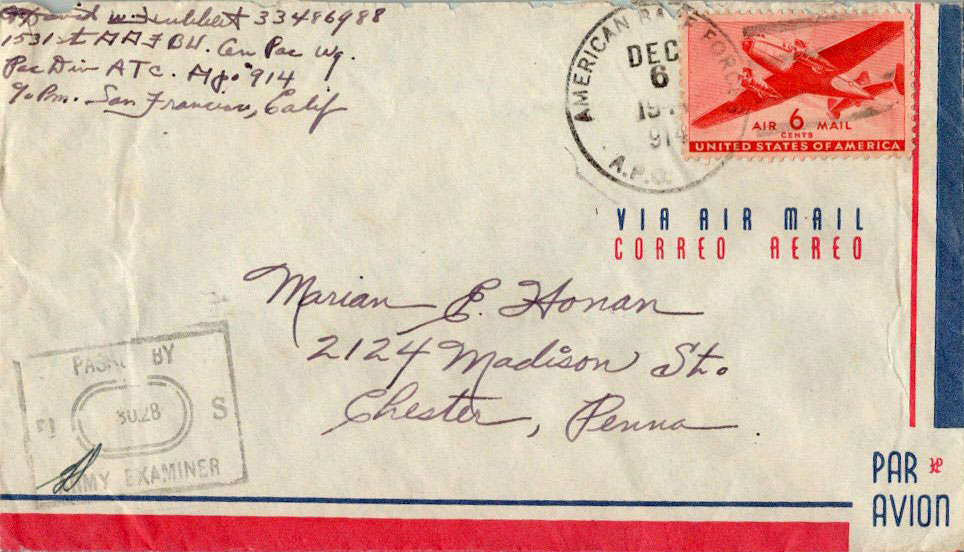 David W. 33486988
1531st AAFBU. Cen Pac Wg.
Pac Div ATC. 914
San Francisco, Calif
AMERICAN BASE FORCES
DEC
6
914
A.P.O.
AIR 6 MAIL
CENTS
UNITED STATES OF AMERICA
VIA AIR MAIL
CORREO AEREO
Marian E. Honan
2124 Madison St.
Chester, Penna.
BY
S
EXAMINER
PAR
AVION